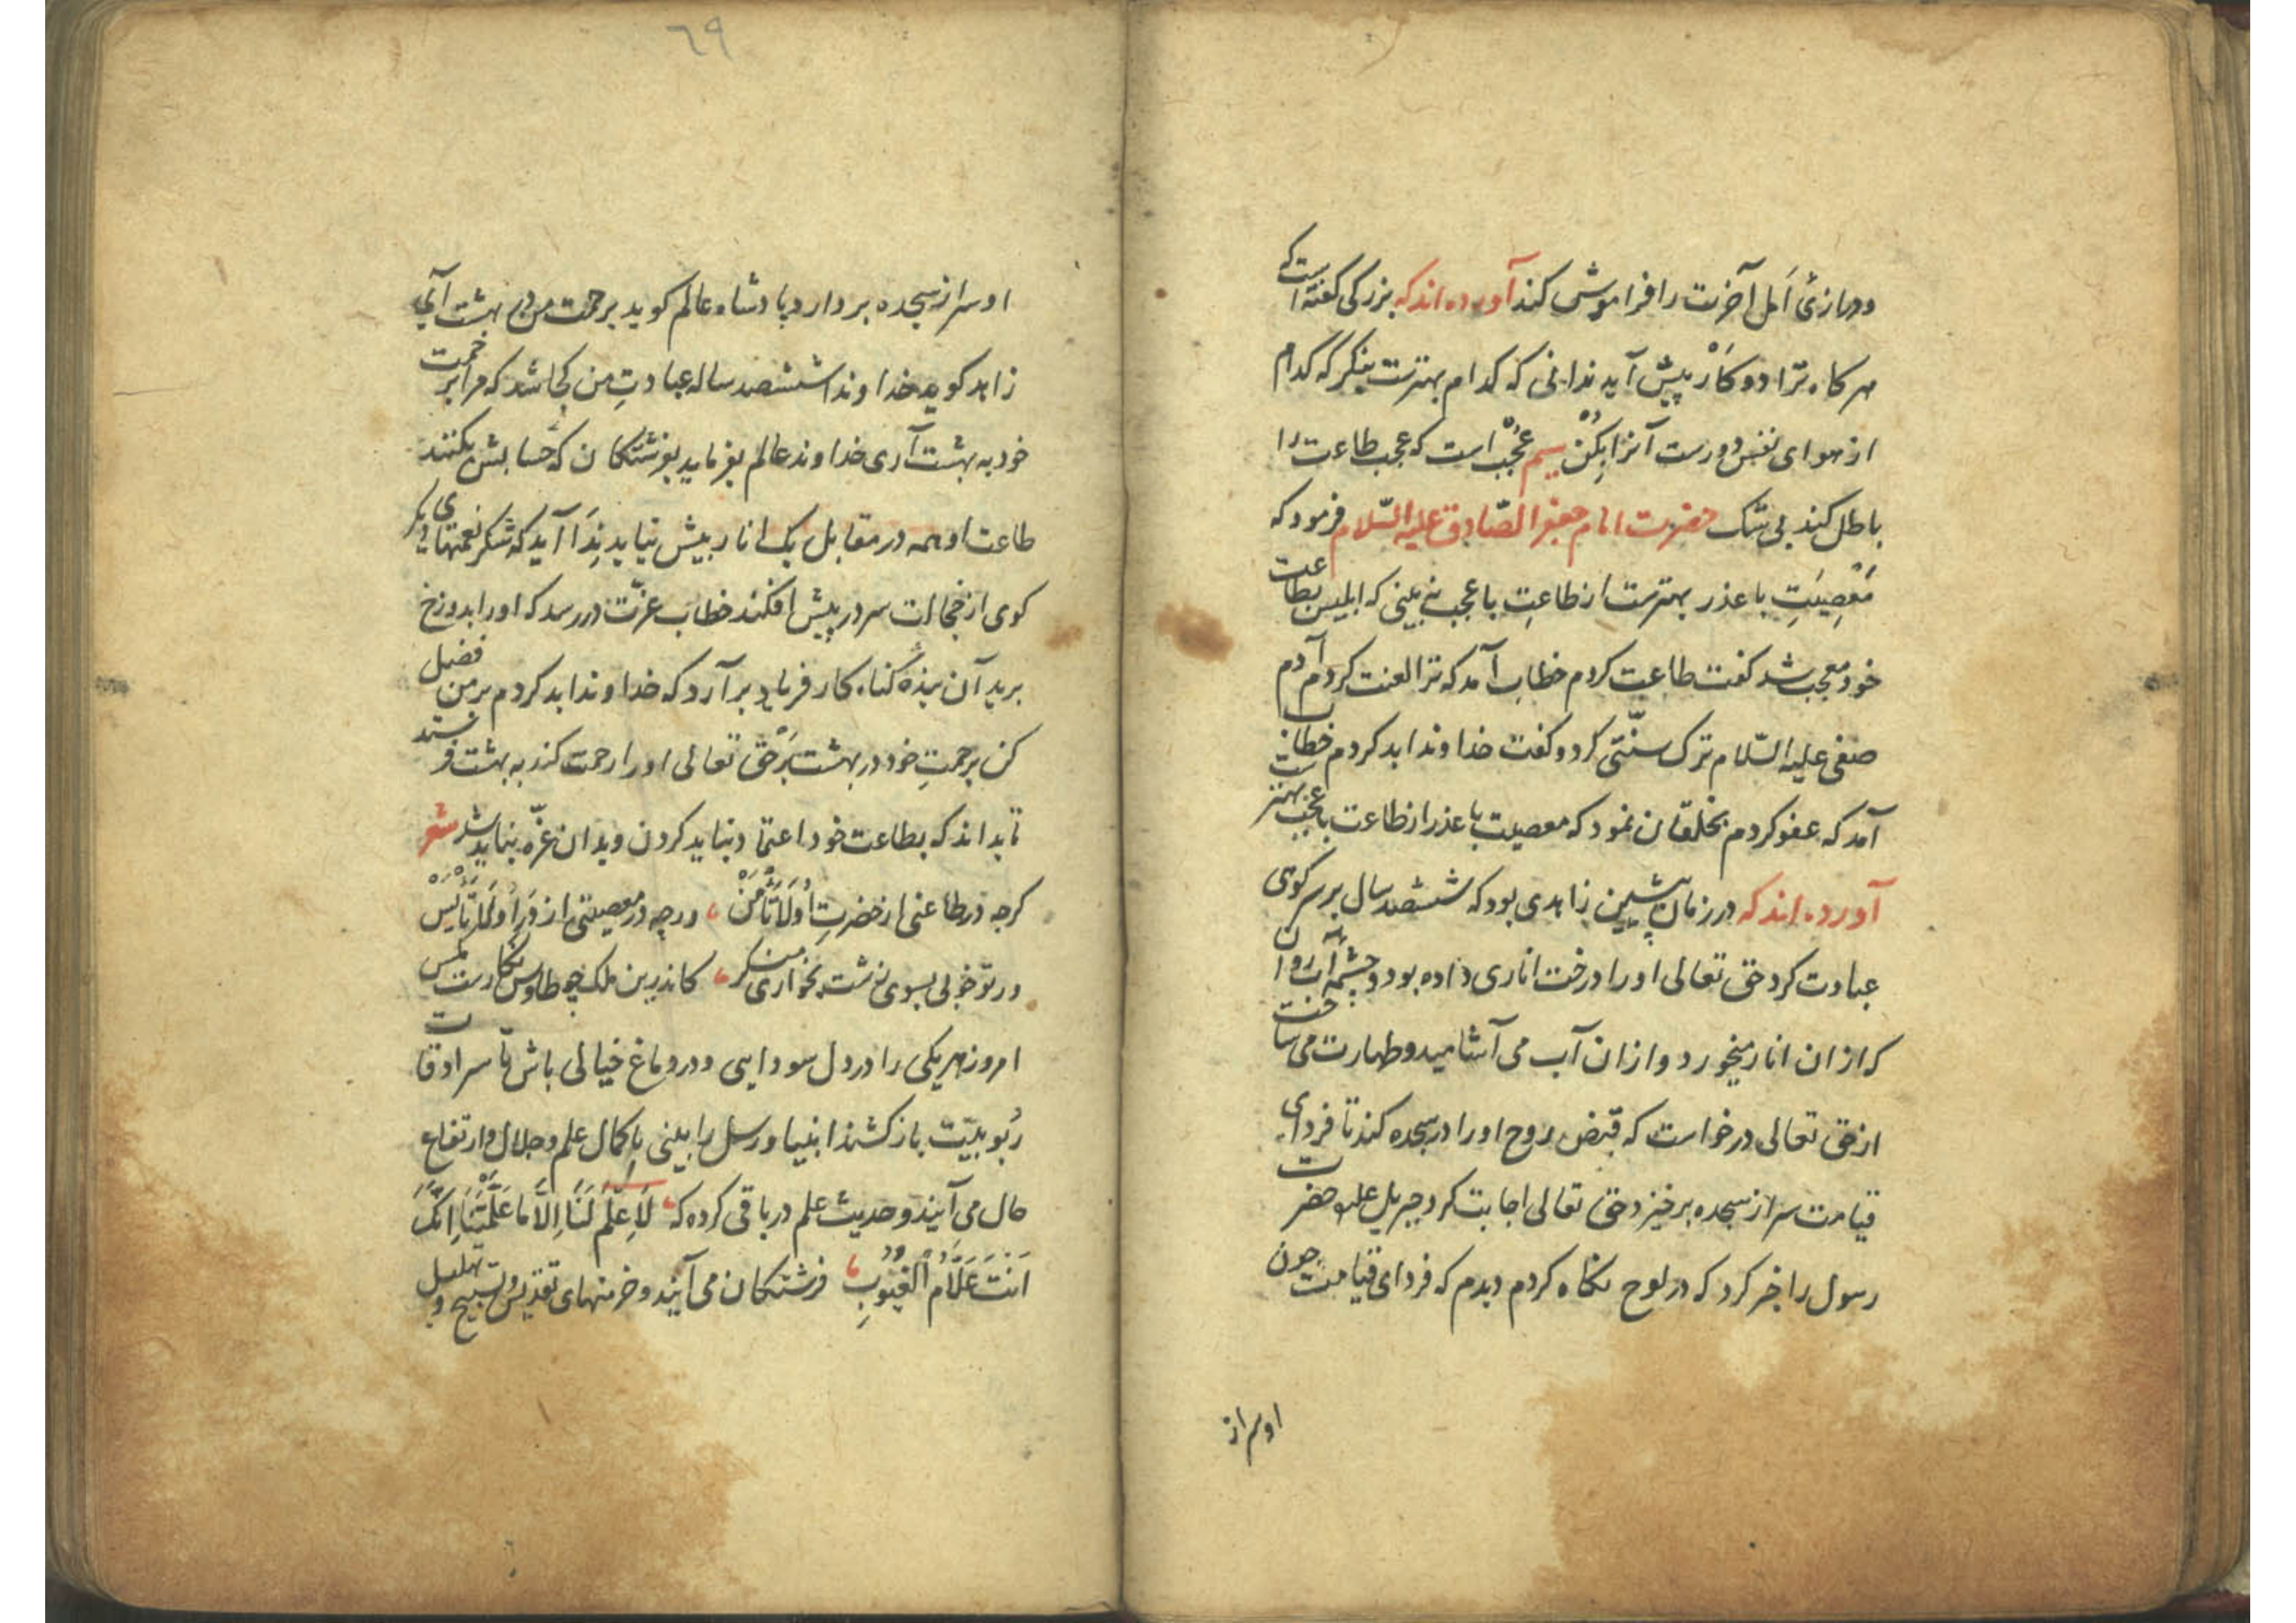 ودرازئ اَمل آخرت را فراموش کند آورده اند که بزرکی کفته است که
هرکاه ترا دو کاَرْ پیش آید ندانی که کدام بهترست بنکر که کدام
از هوای نفس دورست آنرا بِکُنْ سیم عُجْبْ است که عجب طاعت را
باطل کند بی شک حضرت امام جعفر الصّادق علیه السّلام فرمود که
مَعْصِیَتِ با عذر بهترست از طاعتِ با عجب نه بینی که ابلیس بطاعت
خود معجب شد کفت طاعت کردم خطاب آمد که ترا لعنت کردم آدم
صفی علیه السّلام ترک سنّتی کرد و کفت خداوندا بد کردم خطاب
آمد که عفو کردم بخلقان نمود که معصیت با عذر از طاعت با عجب بهترست
آورده اند که در زمان پیشین زاهدی بود که ششصد سال بر سر کوی
عبادت کرد حق تعالی او را درخت اناری داده بود و چشمهٔ آب روان
که از ان انار میخورد و از ان آب می آشامید و طهارت می ساخت
از حق تعالی درخواست که قبض روح او را در سجده کند تا فردای
قیامت سر از سجده برخیزد حق تعالی اجابت کرد جبریل علیه حضرت
رسول را خبر کرد که در لوح نکاه کردم دیدم که فردای قیامت چون
او سر از
٦٩
او سر از سجده بر دارد پادشاه عالم کوید برحمت من در بهشت آی
زاهد کوید خداوندا ششصد ساله عبادتِ من کجا شد که مرا برحمت
خود به بهشت آری خداوند عالم بفرماید بفرشتکان که حسابش بکنند
طاعت او همه در مقابل یک انار بیش نیاید نِدَا آید که شکر نعمتهای دیکر
کوی از خجالت سر در پیش افکند خطاب عزّت در رسد که او را بدوزخ
برید آن بنده کناه کار فریاد بر آرد که خداوندا بد کردم بر من فضل
کن برحمتِ خود در بهشت بَرْ حق تعالی او را رحمت کند به بهشت فرستد
تا بداند که بطاعت خود اعتماد نباید کردن و بدان غرّه نباید شد شعر
کرچه در طاعتی از حضرتِ اُو لَاتَأْمَنْ ، ورچه در معصیتی از دَرِ اُو لَاتَأْیَسْ
ور تو خوبی بسوی زشت بخواری منکر ، کاندرین ملک چو طاوس بکارست مکس
امروز هر یکی را در دل سودایی و در دماغ خیالی باش تا سرادقات
رُبوبیّت باز کشند انبیا و رسل را بینی با کمال علم و جلال و ارتفاع
حال می آیند و حدیث علم در باقی کرده که ، لَاعِلْمَ لَنَا اِلاَّ مَا عَلَّمْتَنَا اِنَّکَ
اَنْتَ عَلَّامُ الْغُیُوبِ ، فرشتکان می آیند و خرمنهای تقدیس و تسبیح و تهلیل